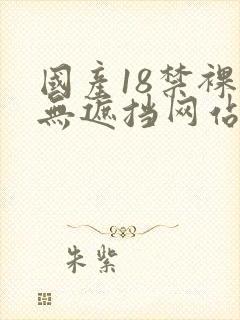 國產18禁裸
無遮挡网佔
朱紫